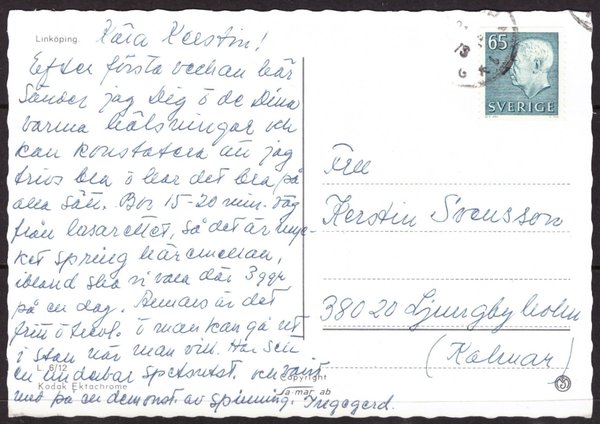 Linköping.
Kära Kerstin!
Efter första veckan här
sänder jag Dig o de Dina
varma hälsningar och
kan konstatera att jag
trivs bra o har det bra på
alla sätt. Bor 15-20 min. väg
från lasarettet, så det är myc-
ket spring häremellan,
ibland ska vi vara där 3 ggr
på en dag. Annars är det
fritt o o man kan gå ut
i stan när man vill. Har sett
en underbar spetsutst. och varit
med på en demonst. av spinning. Ingegerd.
L. 6/12
Kodak Ektachrome
Copyright
a-mar ab
65
SVERIGE
Fru
Kerstin Svensson
38020 Ljungbyholm
(Kalmar)